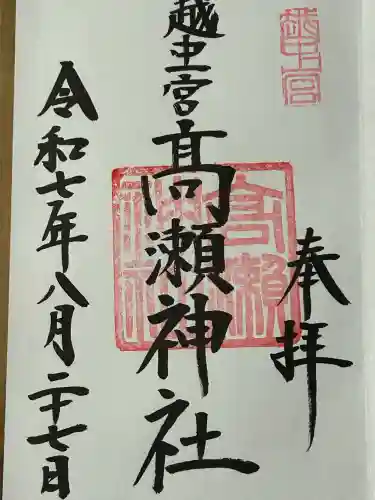 越中宮
奉拝
越中一宮髙瀬神社
髙瀬神社
令和七年八月二十七日